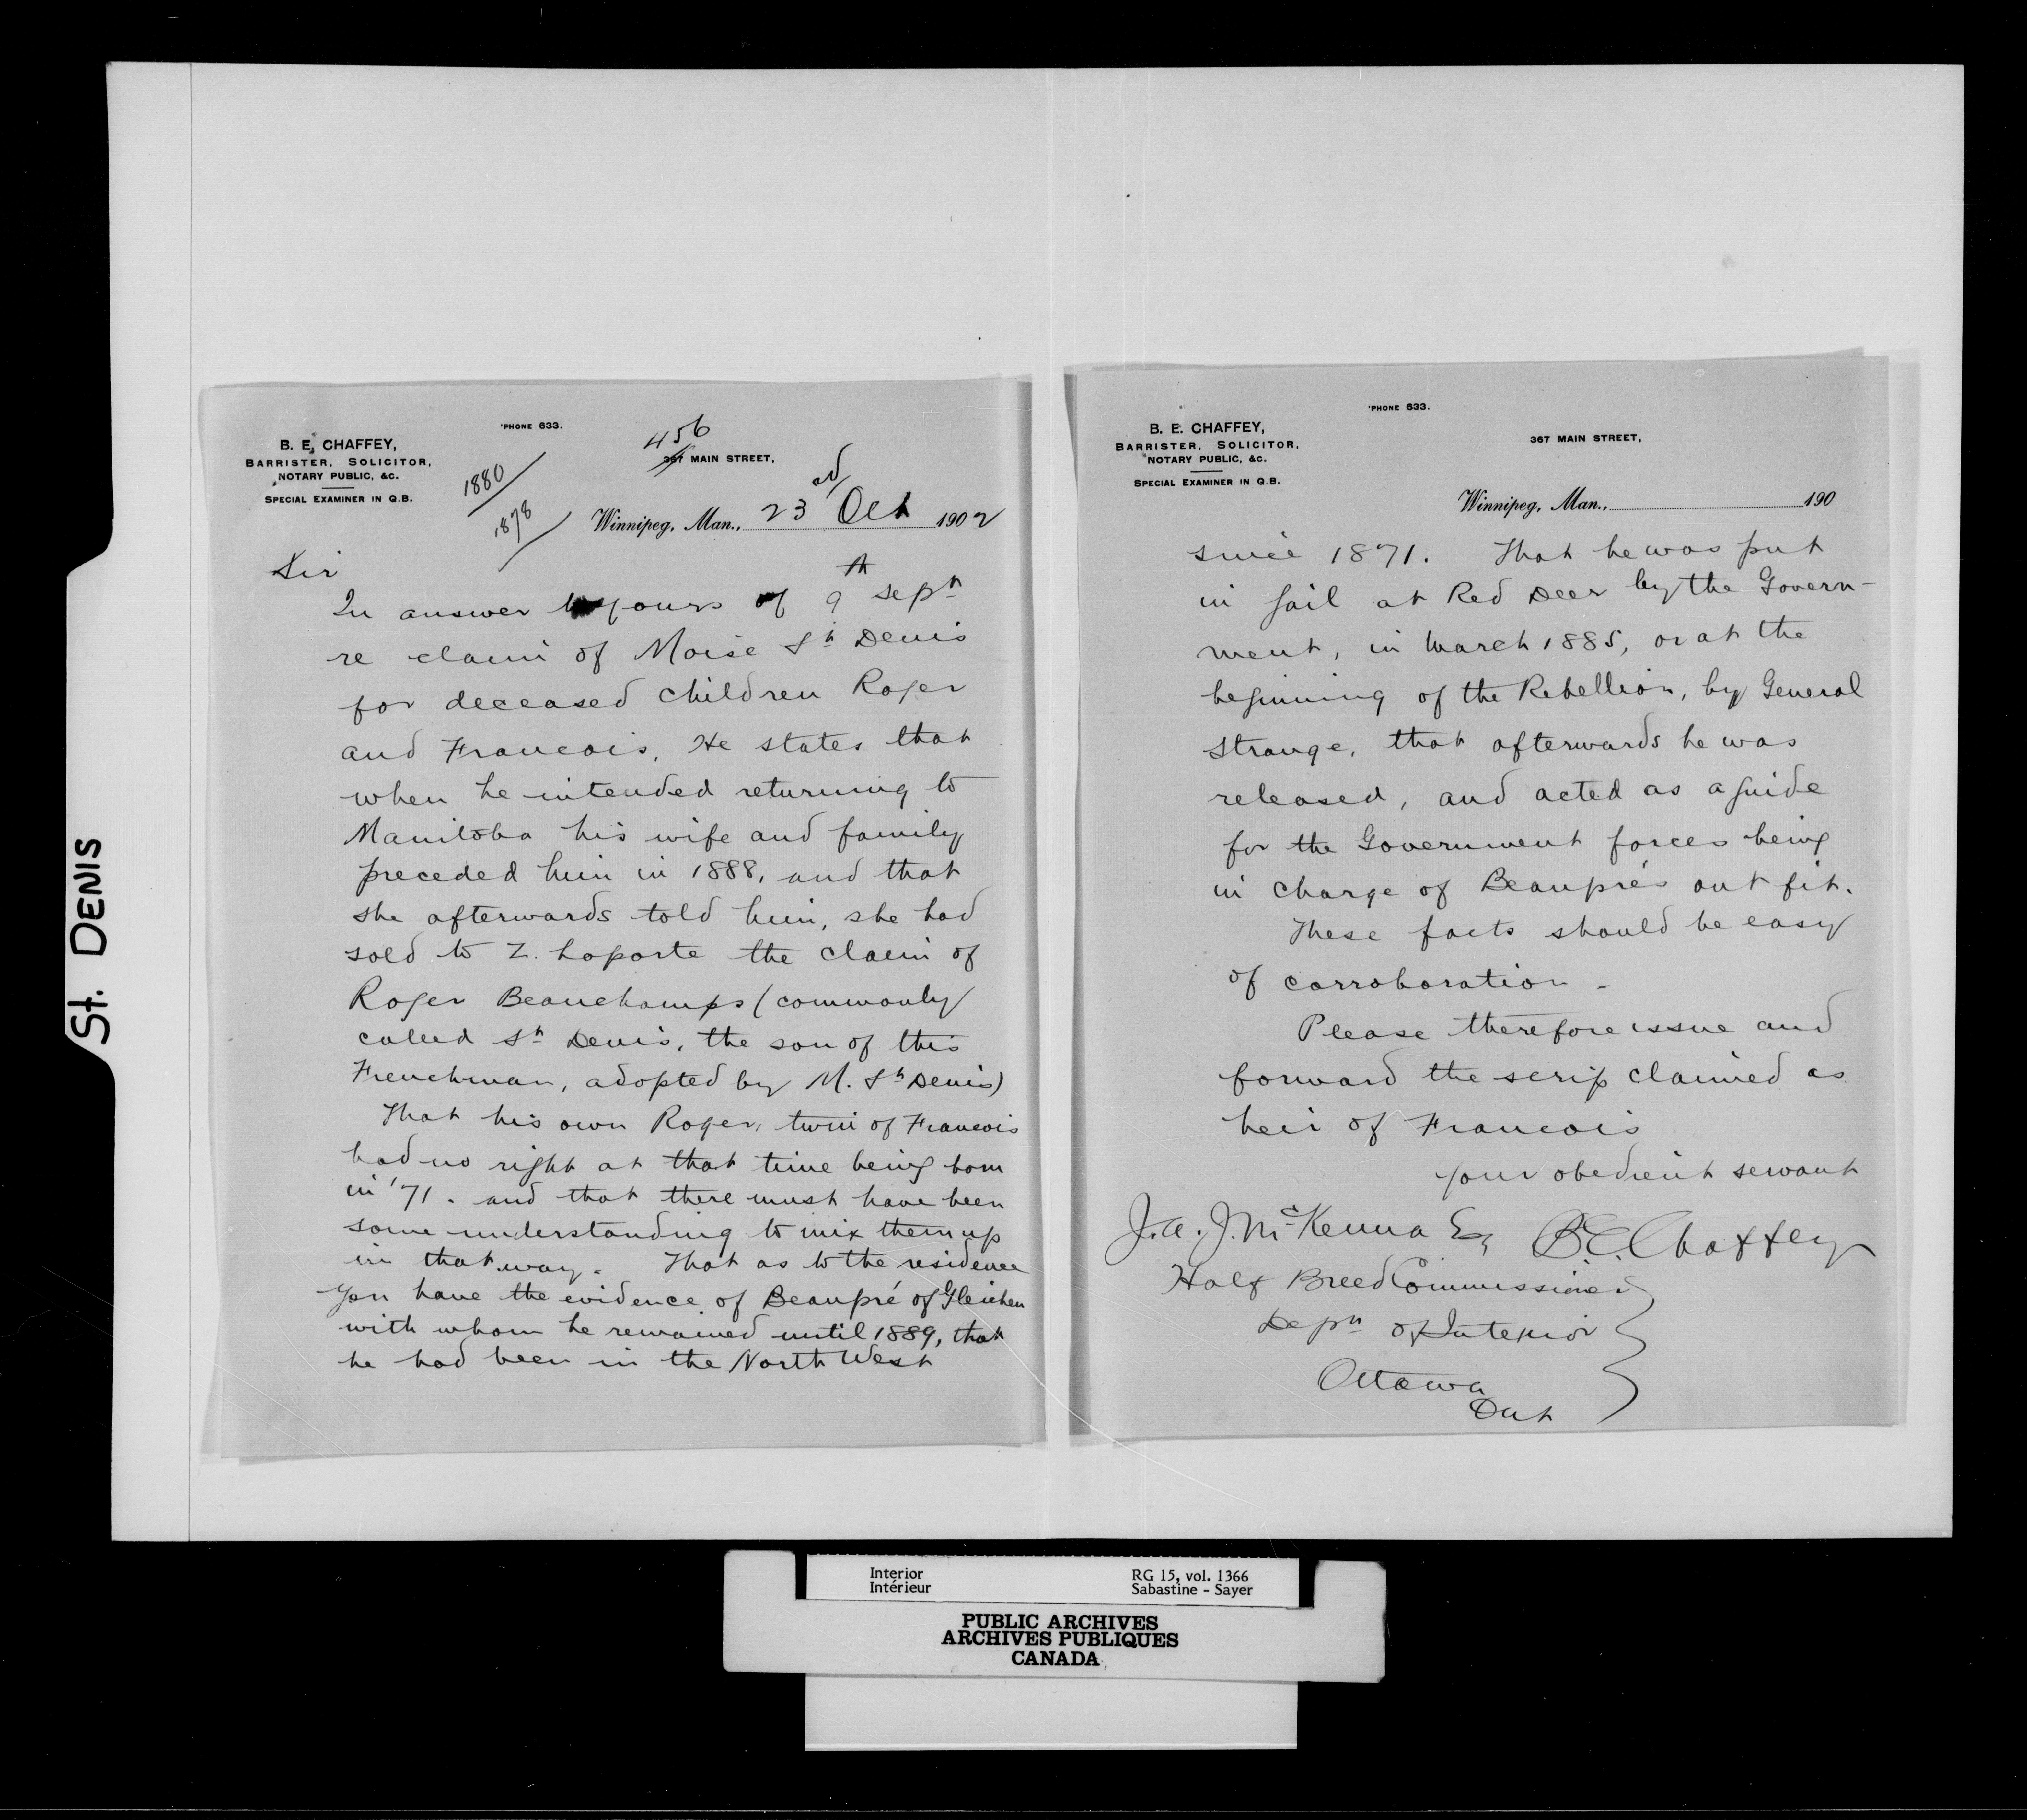 St. DENIS
'PHONE 633.
B. E. CHAFFEY,
BARRISTER, SOLICITOR,
NOTARY PUBLIC, &C.
SPECIAL EXAMINER IN Q.B.
1880
1878
456
367 MAIN STREET,
Winnipeg, Man., 23rd Oct 1902
Sir
In answer to yours of 9th Sept
re claim of Moise St Denis
for deceased children Roger
and Francois, He states that
when he intended returning to
Manitoba his wife and family
preceded him in 1888, and that
she afterwards told him, she had
sold to Z. Laporte the claim of
Roger Beauchamps (commonly
called St Denis, the son of this
Frenchman, adopted by M. St Denis)
That his own Roger, twin of Francois
had no right at that time being born
in '71. and that there must have been
some understanding to mix them up
in that way. That as to the residence
you have the evidence of Beaupré of Gleichen
with whom he remained until 1889, that
he had been in the North West
'PHONE 633.
B. E. CHAFFEY,
BARRISTER, SOLICITOR,
NOTARY PUBLIC, &C.
SPECIAL EXAMINER IN Q.B.
367 MAIN STREET,
Winnipeg, Man., 190
since 1871. That he was put
in jail at Red Deer by the Govern-
ment, in March 1885, or at the
beginning of the Rebellion, by General
Strange, that afterwards he was
released, and acted as a guide
for the Government forces being
in charge of Beaupré's out fit.
These facts should be easy
of corroboration -
Please therefore issue and
forward the scrip claimed as
heir of Francois
your obedient servant
J. A. J. McKenna Esq B.E. Chaffey
Half Breed Commissioner
Dept of Interior
Ottawa
Ont
Interior
Intérieur
RG 15, vol. 1366
Sabastine - Sayer
PUBLIC ARCHIVES
ARCHIVES PUBLIQUES
CANADA